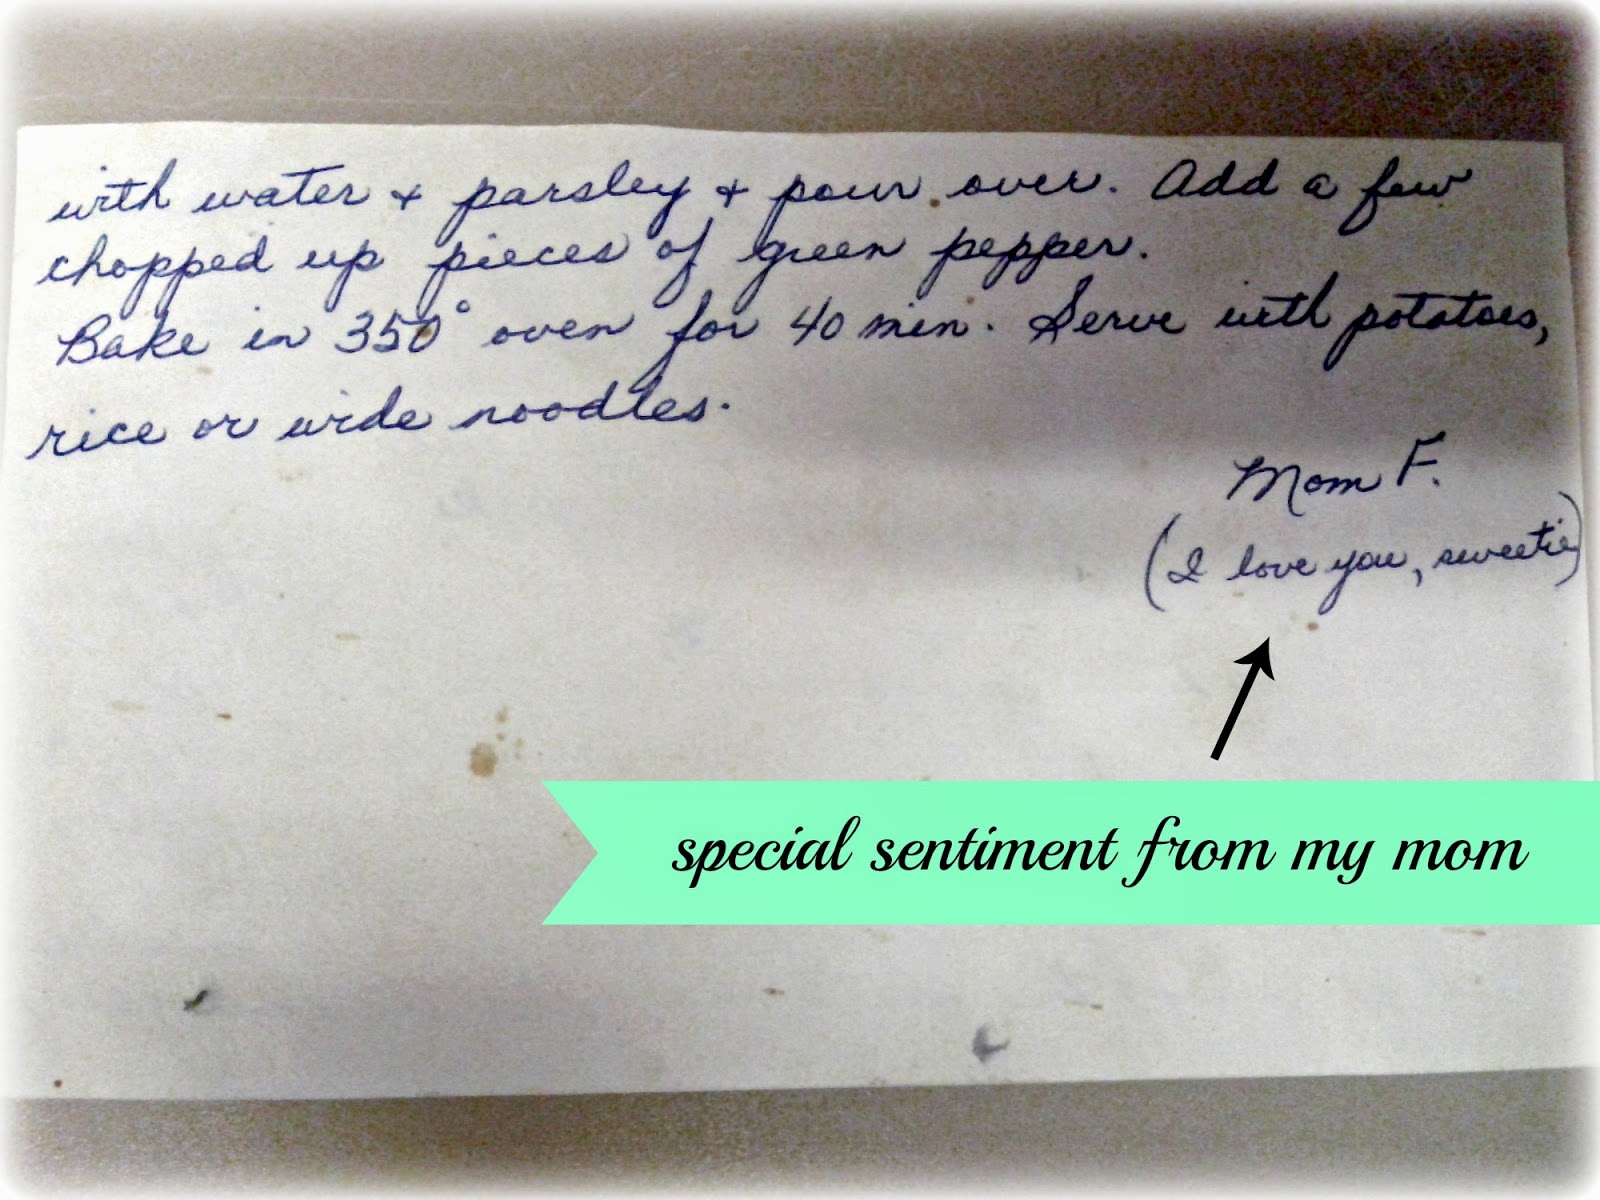 with water + parsley + pour over. Add a few
chopped up pieces of green pepper.
Bake in 350° oven for 40 min. Serve with potatoes,
rice or wide noodles.
Mom F.
(I love you, sweetie)
special sentiment from my mom